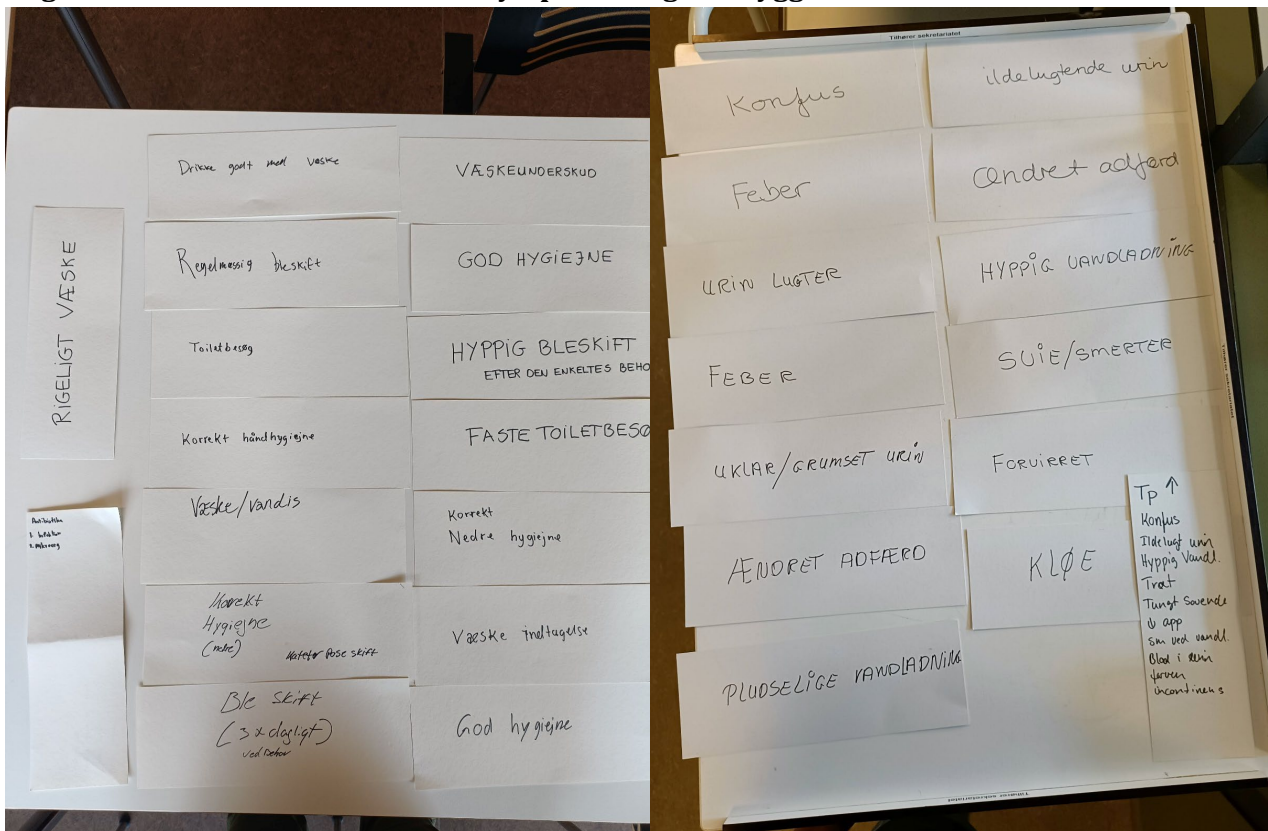 RIGELIGT VÆSKE
Drikke godt med væske
Regelmæssig bleskift
Toiletbesøg
Korrekt håndhygiejne
Væske/vandis
Korrekt
Hygiejne
(nedre)
Kateter pose skift
Ble skift
(3 x dagligt)
ved behov
VÆSKEUNDERSKUD
GOD HYGIEJNE
HYPPIG BLESKIFT
EFTER DEN ENKELTES BEHO
FASTE TOILETBESØ
Korrekt
Nedre hygiejne
Væske indtagelse
God hygiejne
Tilhører sekretariatet
Konfus
Feber
URIN LUGTER
FEBER
UKLAR/GRUMSET URIN
ÆNDRET ADFÆRD
PLUDSELIGE VANDLADNING
ildelugtende urin
Ændret adfærd
HYPPIG VANDLADNING
SVIE/SMERTER
FORVIRRET
KLØE
Tp ↑
Konfus
Ildelugt urin
Hyppig Vandl.
Træt
Tungt Sovende
↓ app
Sm ved vandl.
Blod i urin
farven
incontinens